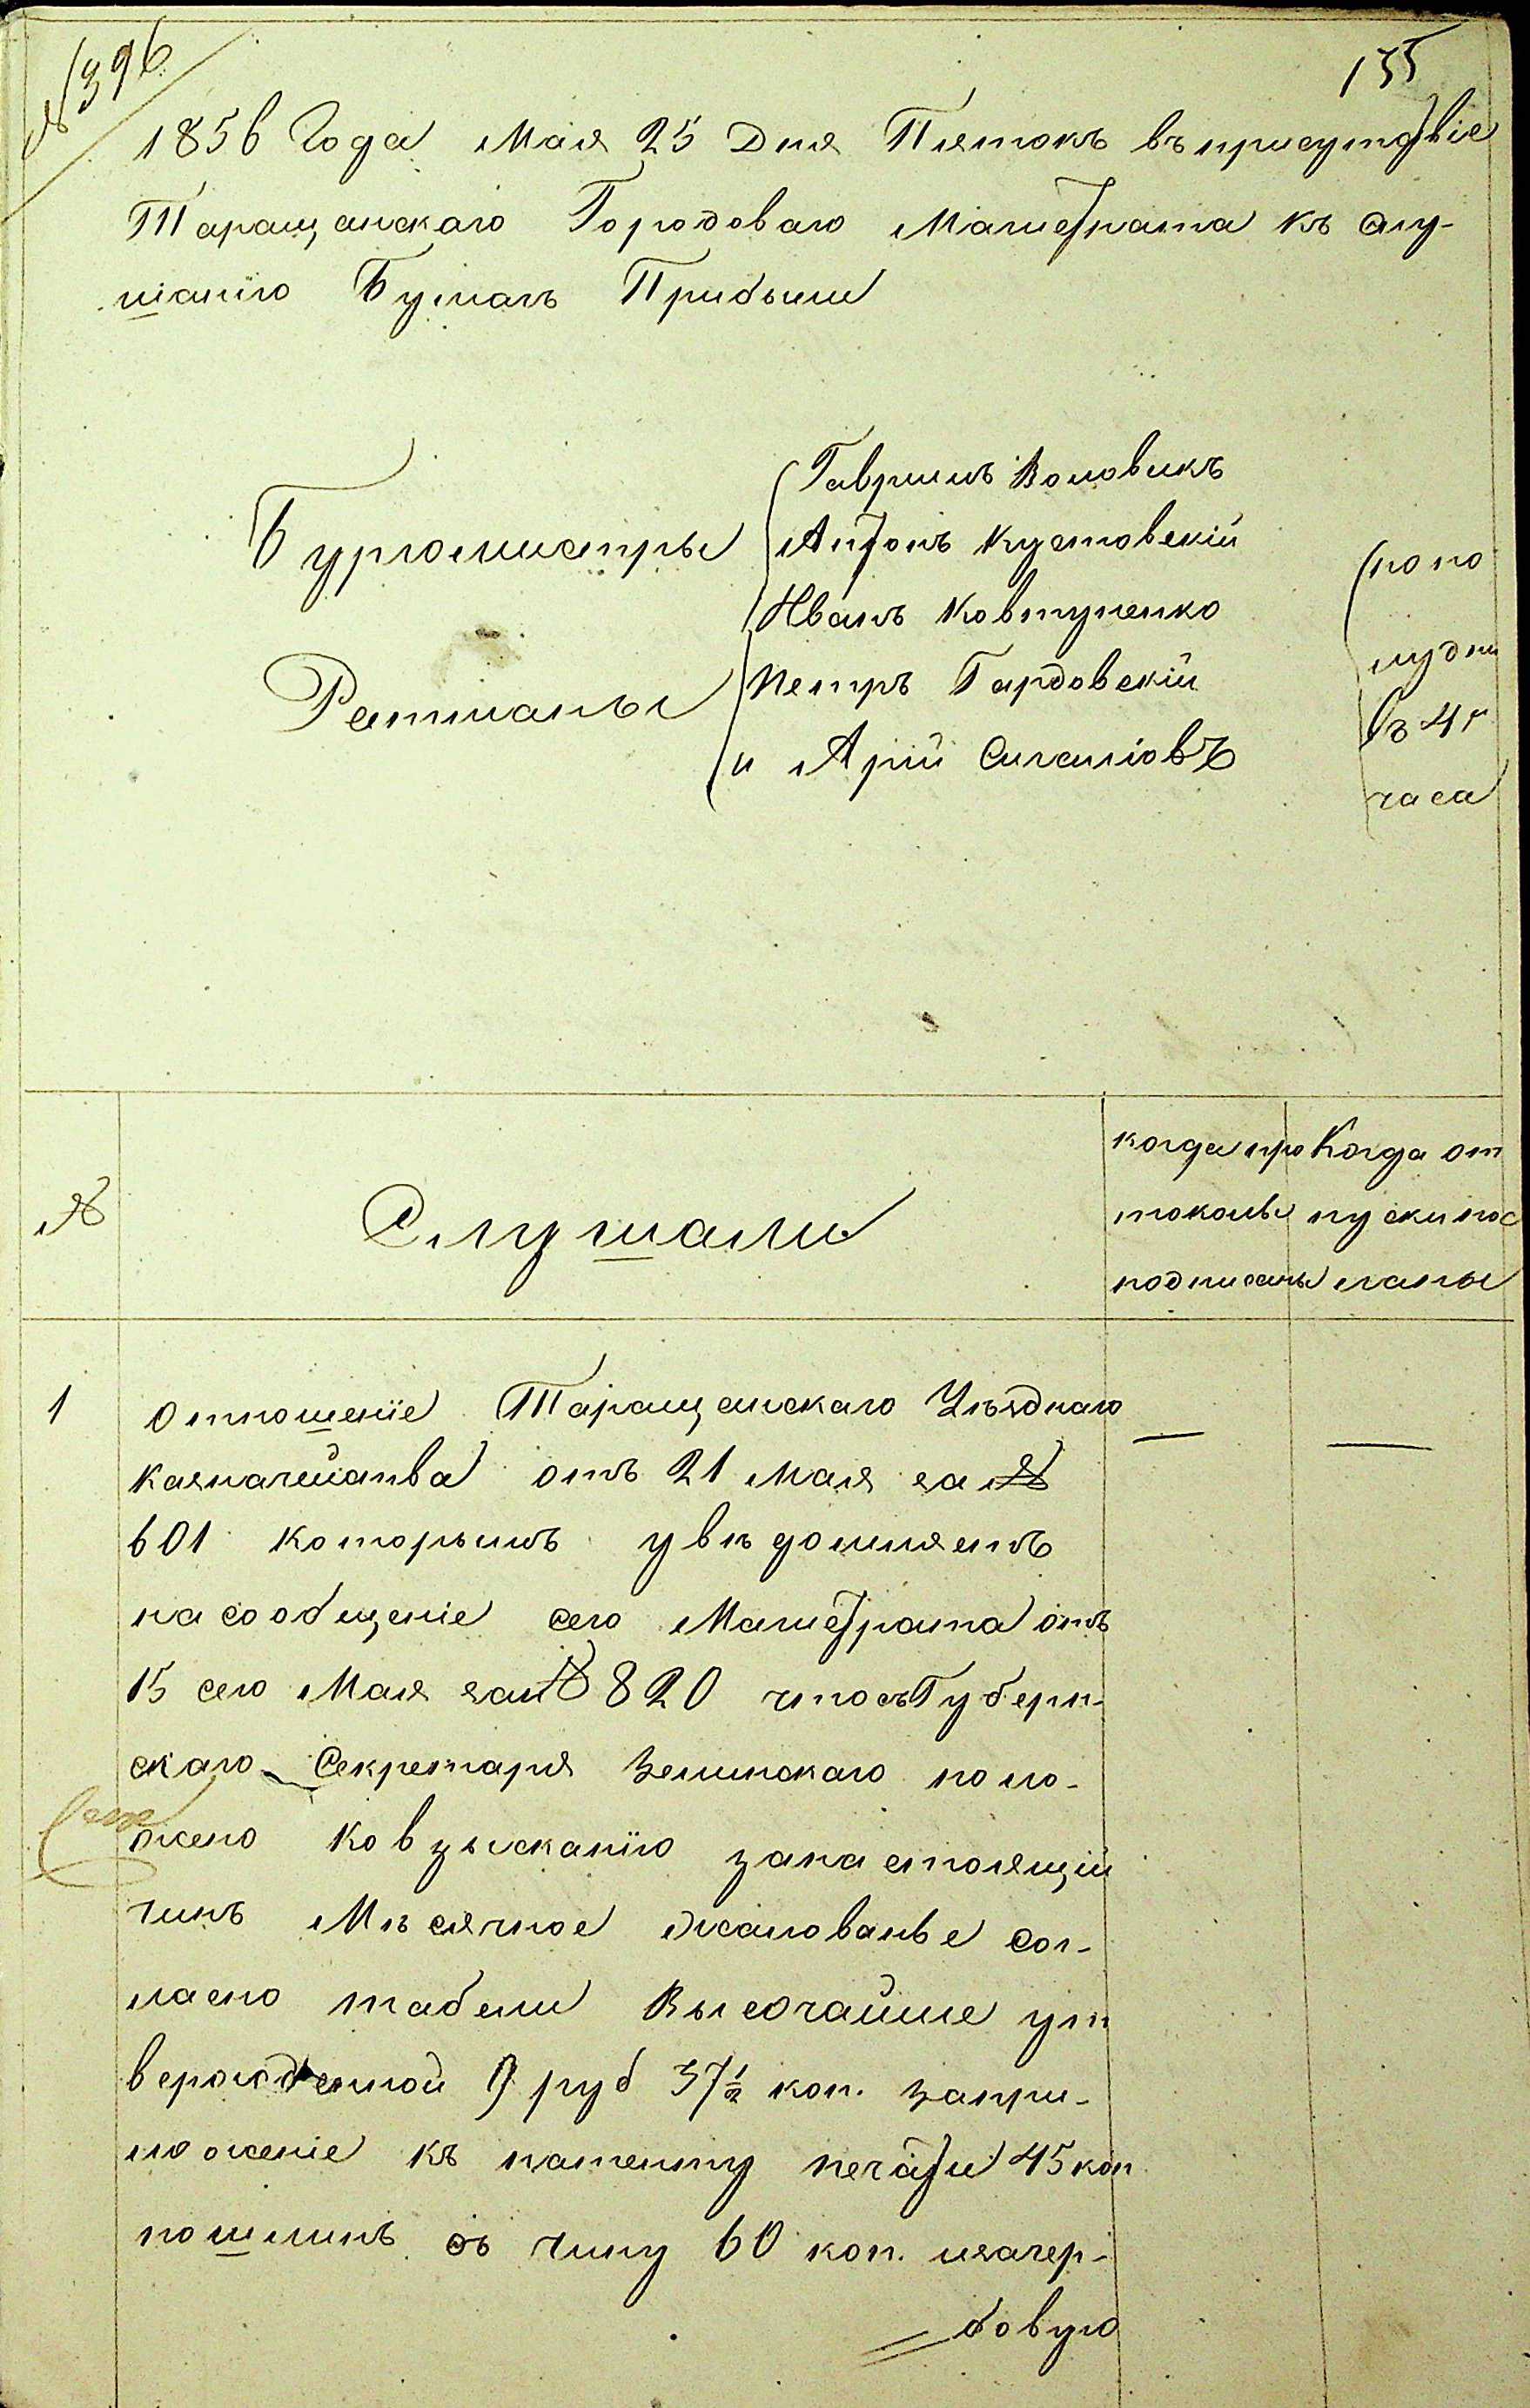 № 396
135
1856 Года Мая 25 Дня Пятокъ въ присутствіе
Таращанскаго Городоваго Магистрата къ слу-
шанію Бумагъ Прибыли
Бургомистры
Гаврилъ Воловикъ
Антонъ Кустовскій
Ратманы
Иванъ Ковтуненко
Петръ Гардовскій
и Арій Сигаловъ
по по
лудни
въ 4 ч
часа
№
Слушали
когда про
токолы
подписаны
Когда от
пуски пос
ланы
1
Отношеніе Таращанскаго Уѣзднаго
Казначейства отъ 21 мая за №
601 которымъ увѣдомляетъ
на сообщеніе сего Магистрата отъ
15 сего Мая за № 820 что съ Губерн-
скаго Секретаря Зелинскаго поло-
жено ко взысканію за настоящій
чинъ Мѣсячное жалованье сог-
ласно табели Высочайше ут
вержденной 9 руб 37½ коп. за при-
ложеніе къ патенту печати 45 коп
пошлинъ съ чину 60 коп. и за гер-
бовую